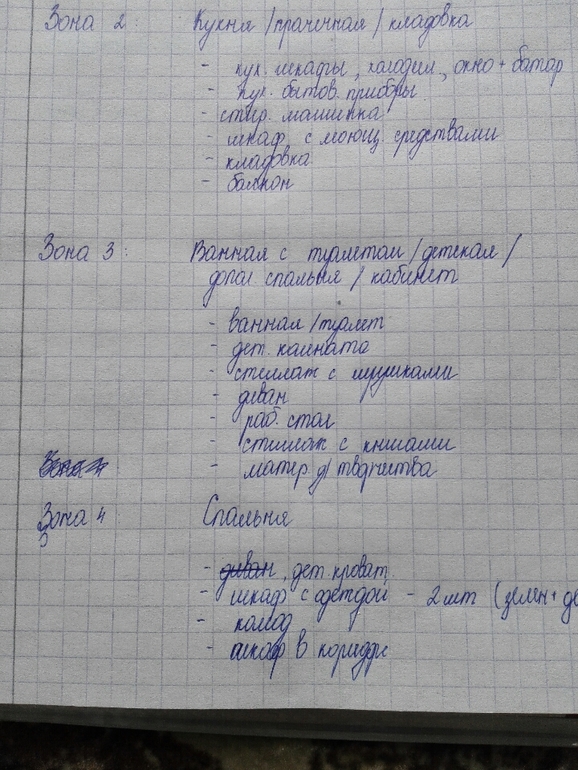 Зона 2: Кухня / прачечная / кладовка
- кух. шкафы, холодил., окно + батар
- кух. бытов. приборы
- стир. машинка
- шкаф с моющ. средствами
- кладовка
- балкон
Зона 3: Ванная с туалетом / детская /
допол. спальня / кабинет
- ванная / туалет
- дет. комната
- стеллаж с игрушками
- диван
- раб. стол
- стеллаж с книгами
- матер. д/ творчества
Зона 4 Спальня
- диван, дет. кроват.
- шкаф с одеждой - 2 шт (зелен + де
- комод
- шкаф в коридоре